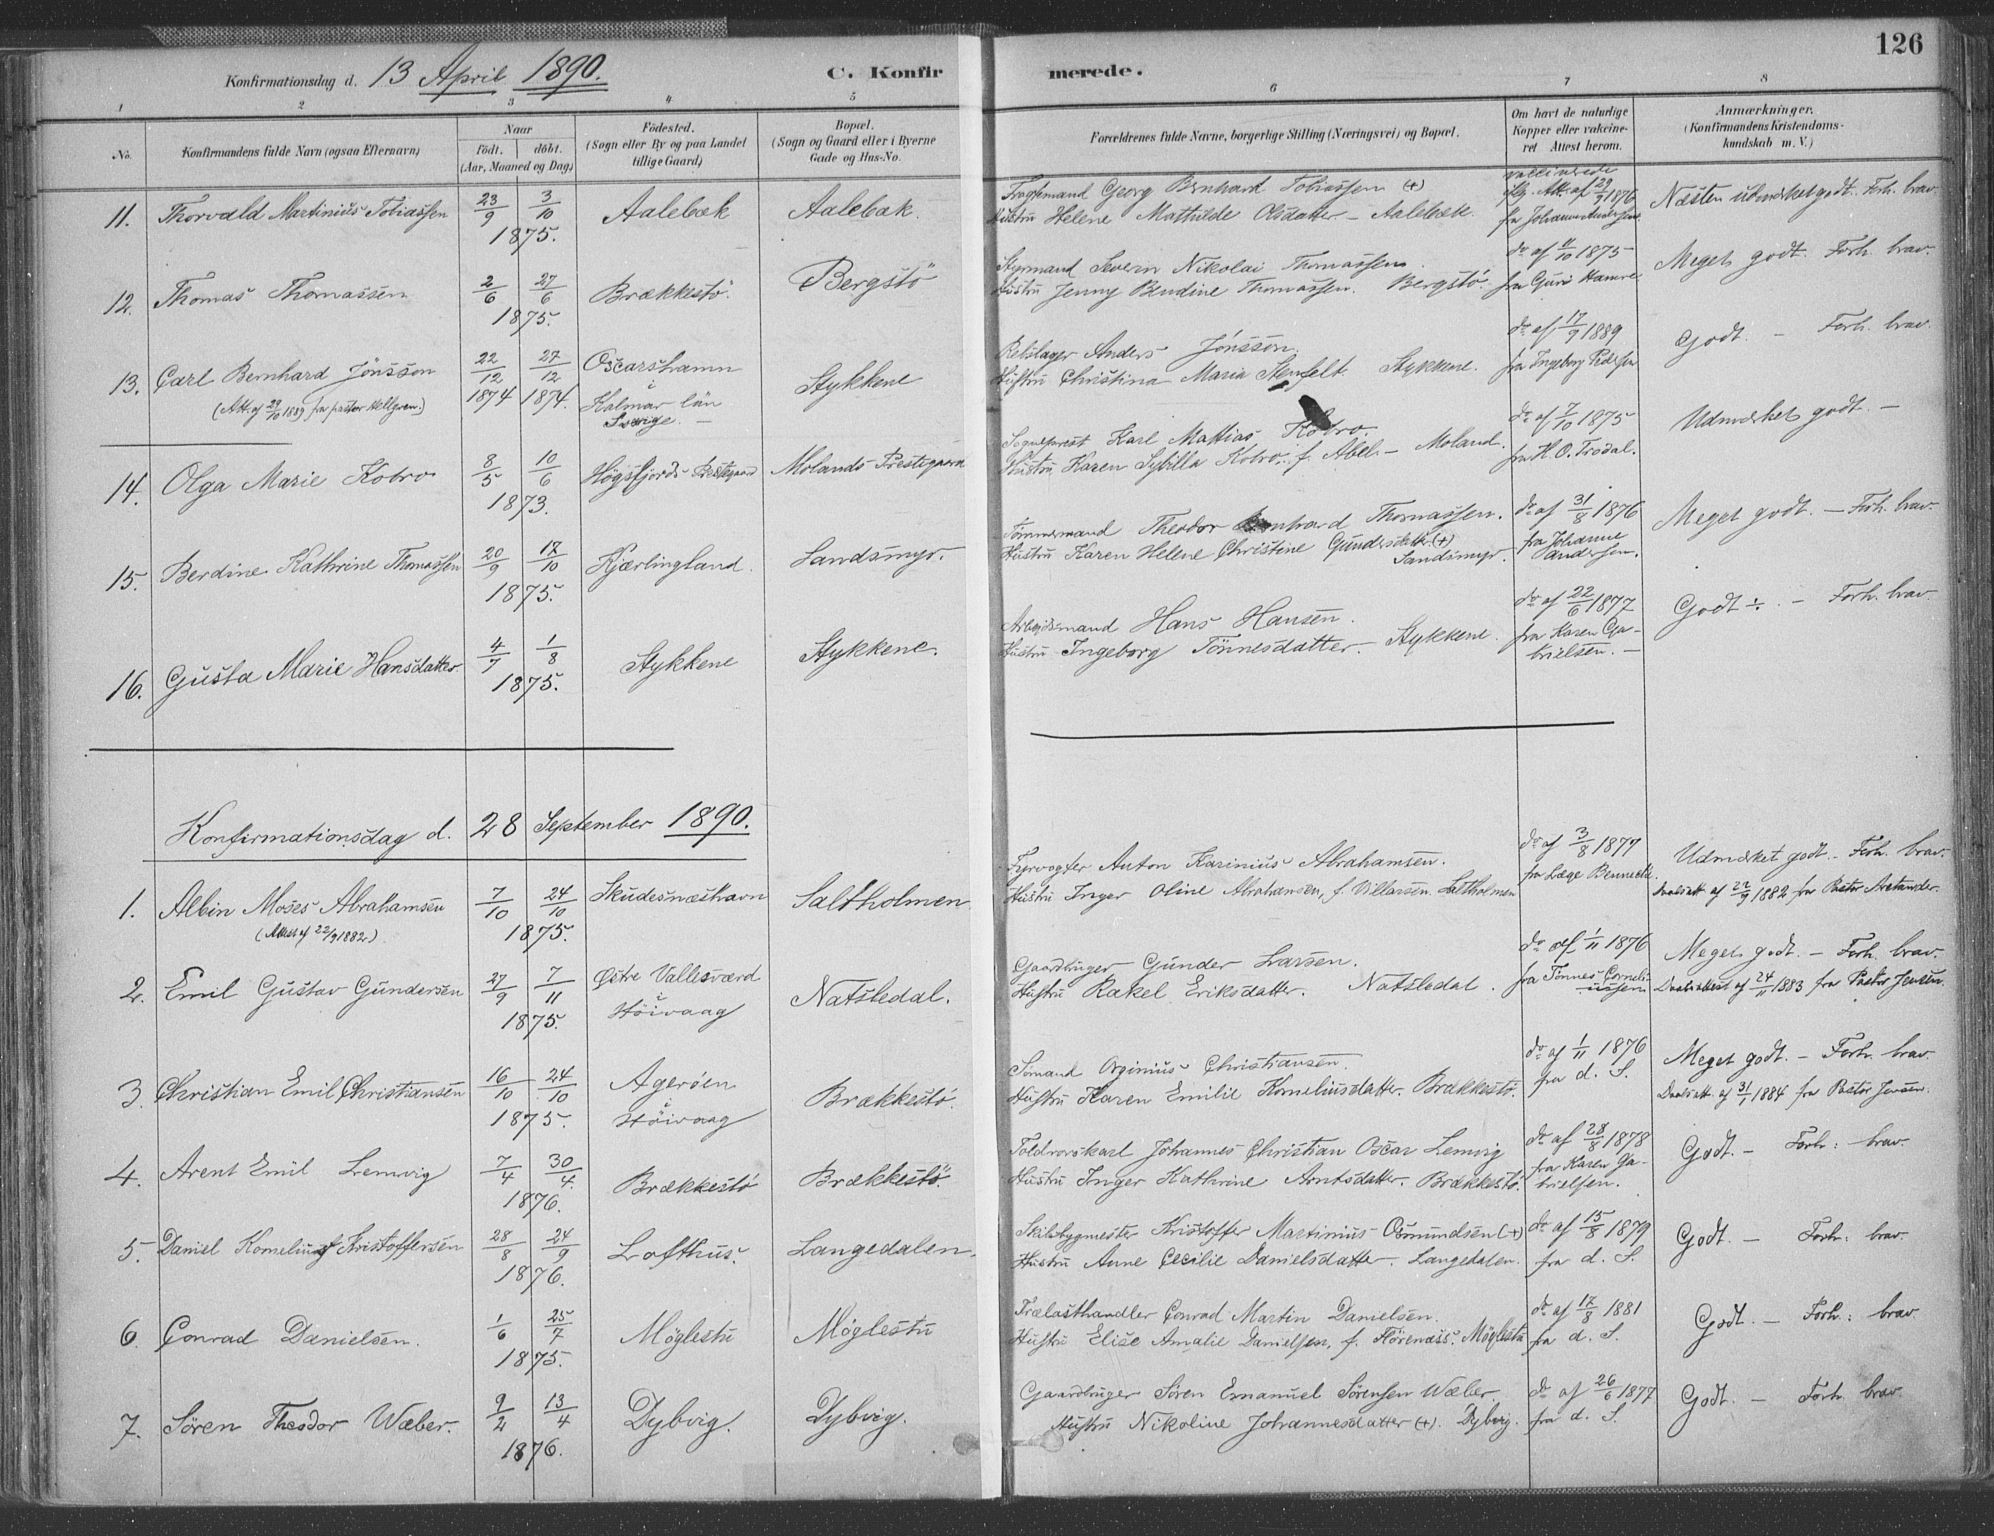 126
Konfirmationsdag d. 13 April 1890.
C. Konfirmerede.
1 2 3 4 5 6 7 8
No.
Konfirmandens fulde Navn (ogsaa Efternavn)
Naar
Födt. döbt.
(Aar, Maaned og Dag)
Födested.
(Sogn eller By og paa Landet
tillige Gaard)
Bopæl.
(Sogn og Gaard eller i Byerne
Gade og Hus-No.
Forældrenes fulde Navne, borgerlige Stilling (Næringsvei) og Bopæl.
Om havt de naturlige
Kopper eller vakcine-
ret Attest herom.
Anmærkninger.
(Konfirmandens Kristendoms-
kundskab m. V.)
11. Thorvald Martinius Tobiassen 23/9 3/10 1875. Aalebæk Aalebæk.
Georg Bernhard Tobiassen (+)
Hustru Helene Mathilde Olsdatter - Aalebæk.
vaccinerede
ifg. Att. af 29/9 1876
fra Johanne Andersen.
Næsten udmærket godt. Forh. brav.
12. Thomas Thomassen 2/6 27/6 1875. Brækkestö. Bergstö
Styrmand Severin Nikolai Thomassen
Hustru Jenny Bendine Thomassen. Bergstö.
do af 11/10 1875
fra Guri Hamre
Meget godt. Forh. brav.
13. Carl Bernhard Jönsson 22/12 1874 27/12 1874. Oscarshamn
i
Kalmar län
Sverige. -
Stykkene
(Att. af 29/10 1889 fra pastor Hellgren.)
Rebslager Anders Jönsson.
Hustru Christina Maria Stenfelt Stykkene.
do af 17/9 1889
fra Ingeborg Pedersen
Godt. - Forh. brav.
14. Olga Marie Kobro 8/5 10/6 1873. Högsfjords Prestegaard Molands Prestegaard
Sogneprest Karl Mattias Kobro
Hustru Karen Sybilla Kobro, f. Abel. - Moland.
do af 7/10 1875
fra H. O. Trodal.
Udmærket godt. -
15. Berdine Kathrine Thomassen 20/9 17/10 1875. Kjærlingland. Sandsmyr.
Tömmermand Theodor Bernhard Thomassen.
Hustru Karen Helene Christine Gundersdatter (+)
Sandsmyr.
do af 31/8 1876
fra Johanne
Andersen.
Meget godt. - Forh. brav.
16. Gusta Marie Hansdatter 4/7 1/8 1875. Stykkene Stykkene.
Arbeidsmand Hans Hansen.
Hustru Ingeborg Tönnesdatter. - Stykkene.
do af 22/6 1877
fra Karen Ga-
brielsen. -
Godt ÷. - Forh. brav.
Konfirmationsdag d. 28 September 1890.
1. Albin Moses Abrahamsen 7/10 24/10 1875. Skudesnæshavn Saltholmen.
(Attest af 22/9 1882)
Fyrvogter Anton Karinius Abrahamsen.
Hustru Inger Oline Abrahamsen, f. Villarsen. Saltholmen
do af 3/8 1877
fra Læge Bennecke.
Udmærket godt. - Forh. brav.
Daabsatt. af 22/9 1882 fra Pastor Aretander.
2. Emil Gustav Gundersen 27/9 7/11 1875. Østre Vallesværd
i
Höivaag
Natsledal.
Gaardbruger Gunder Larsen.
Hustru Rakel Eriksdatter. Natsledal.
do af 1/11 1876
fra Tönnes Corneli-
ussen
Meget godt. - Forh. brav.
Daabsattest af 24/11 1883 fra Pastor Jensen.
3. Christian Emil Christiansen 16/10 24/10 1875. Agerøen
i
Höivaag
Brækkestö.
Sömand Orginius Christiansen.
Hustru Karen Emilie Korneliusdatter. Brækkestö.
do af 1/11 1876
fra d. S.
Meget godt. - Forh. brav.
Daabsatt. af 31/1 1884 fra Pastor Jensen.
4. Arent Emil Lemvig 7/4 30/4 1876. Brækkestö Brækkestö.
Toldrorskarl Johannes Christian Oscar Lemvig
Hustru Inger Kathrine Arntsdatter. Brækkestö.
do af 28/8 1878
fra Karen Ga-
brielsen.
Godt. - Forh: brav.
5. Daniel Kornelius Kristoffersen 28/8 24/9 1876. Lofthus. Langedalen.
Skibsbygmester Kristoffer Martinius Osmundsen (+)
Hustru Anne Cecilie Danielsdatter. Langedalen.
do af 15/8 1879
fra d. S.
Godt. - Forh: brav.
6. Conrad Danielsen. 1/6 25/7 1875. Möglestu Möglestu
Trælasthandler Conrad Martin Danielsen.
Hustru Elise Amalie Danielsen, f. Hörenæss. Möglestu
do af 17/8 1881
fra d. S.
Godt. - Forh: brav
7. Sören Theodor Wæber. 9/2 13/4 1876. Dybvig. Dybvig.
Gaardbruger Sören Emanuel Sörensen Wæber,
Hustru Nikoline Johannesdatter (+). Dybvig.
do af 26/6 1877
fra d. S.
Godt. - Forh. brav.